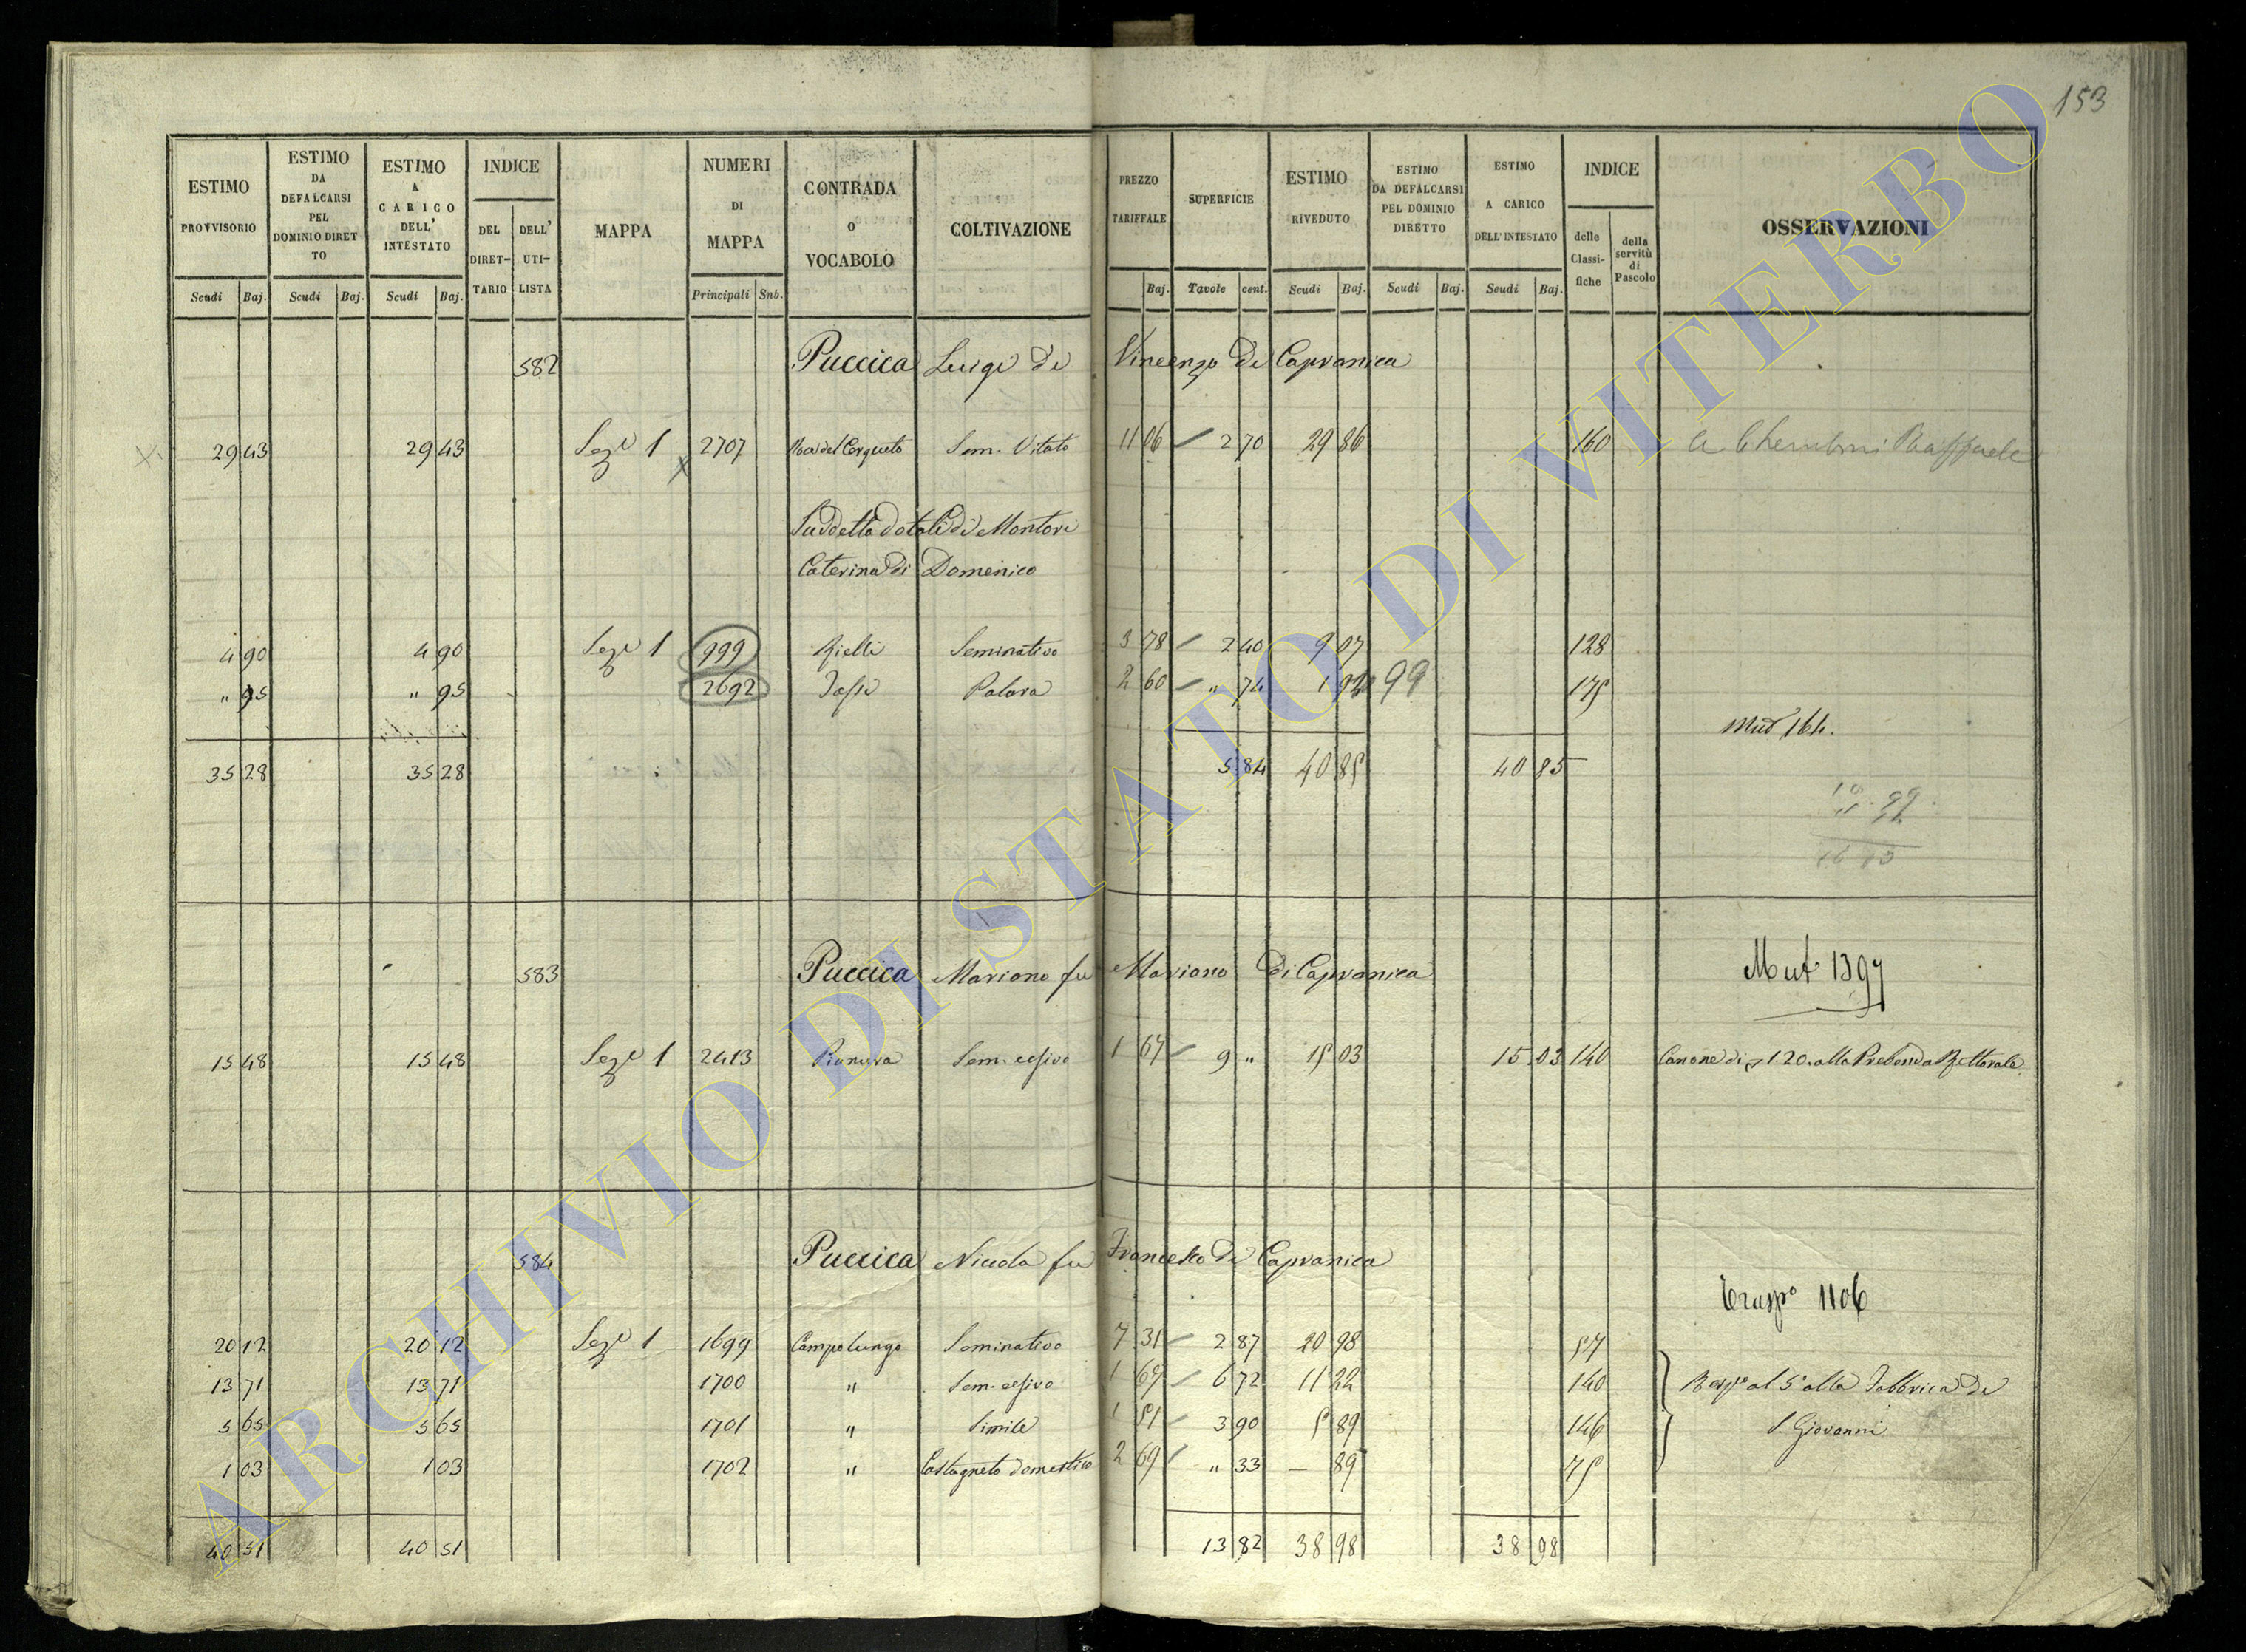 153
ESTIMO PROVVISORIO Scudi Baj.
ESTIMO DA DEFALCARSI PEL DOMINIO DIRETTO Scudi Baj.
ESTIMO A CARICO DELL' INTESTATO Scudi Baj.
INDICE DEL DIRETTARIO DELL' UTILISTA
MAPPA
NUMERI DI MAPPA Principali Snb.
CONTRADA O VOCABOLO
COLTIVAZIONE
PREZZO TARIFFALE Baj.
SUPERFICIE Tavole cent.
ESTIMO RIVEDUTO Scudi Baj.
ESTIMO DA DEFALCARSI PEL DOMINIO DIRETTO Scudi Baj.
ESTIMO A CARICO DELL' INTESTATO Scudi Baj.
INDICE delle Classifiche della servitù di Pascolo
OSSERVAZIONI
582 Puccica Luigi di Vincenzo di Capranica
29 43 29 43 Seze 1 2707 Sem. Vitato 11 06 2 70 29 86 160 Raffaele
Suddetto dotali di Montori
Caterina di Domenico
4 90 4 90 Seze 1 999 Rielli Seminativo 3 78 2 40 9 07 128
" 95 " 95 2692 Palara 2 60 " 74 1 92 99 175
Mut 164.
35 28 35 28 5 84 40 85 40 85
583 Puccica Mariano fu Mariano di Capranica Mut 1397
15 48 15 48 Seze 1 2413 Pianura Sem. 1 67 9 " 15 03 15 03 140 Canone di 1.20. alla Prebenda Rettorale
584 Puccica Nicola fu Francesco di Capranica
Traspo 1106
20 12 20 12 Seze 1 1699 Campo lungo Seminativo 7 31 2 87 20 98 57
13 71 13 71 1700 " Sem. 1 67 6 72 11 22 140 Rispo al 5o alla Fabbrica di
5 65 5 65 1701 " Simile 1 51 3 90 5 89 146 S. Giovanni
1 03 1 03 1702 " Castagneto domestico 2 69 " 33 — 89 75
40 51 40 51 13 82 38 98 38 98
ARCHIVIO DI STATO DI VITERBO